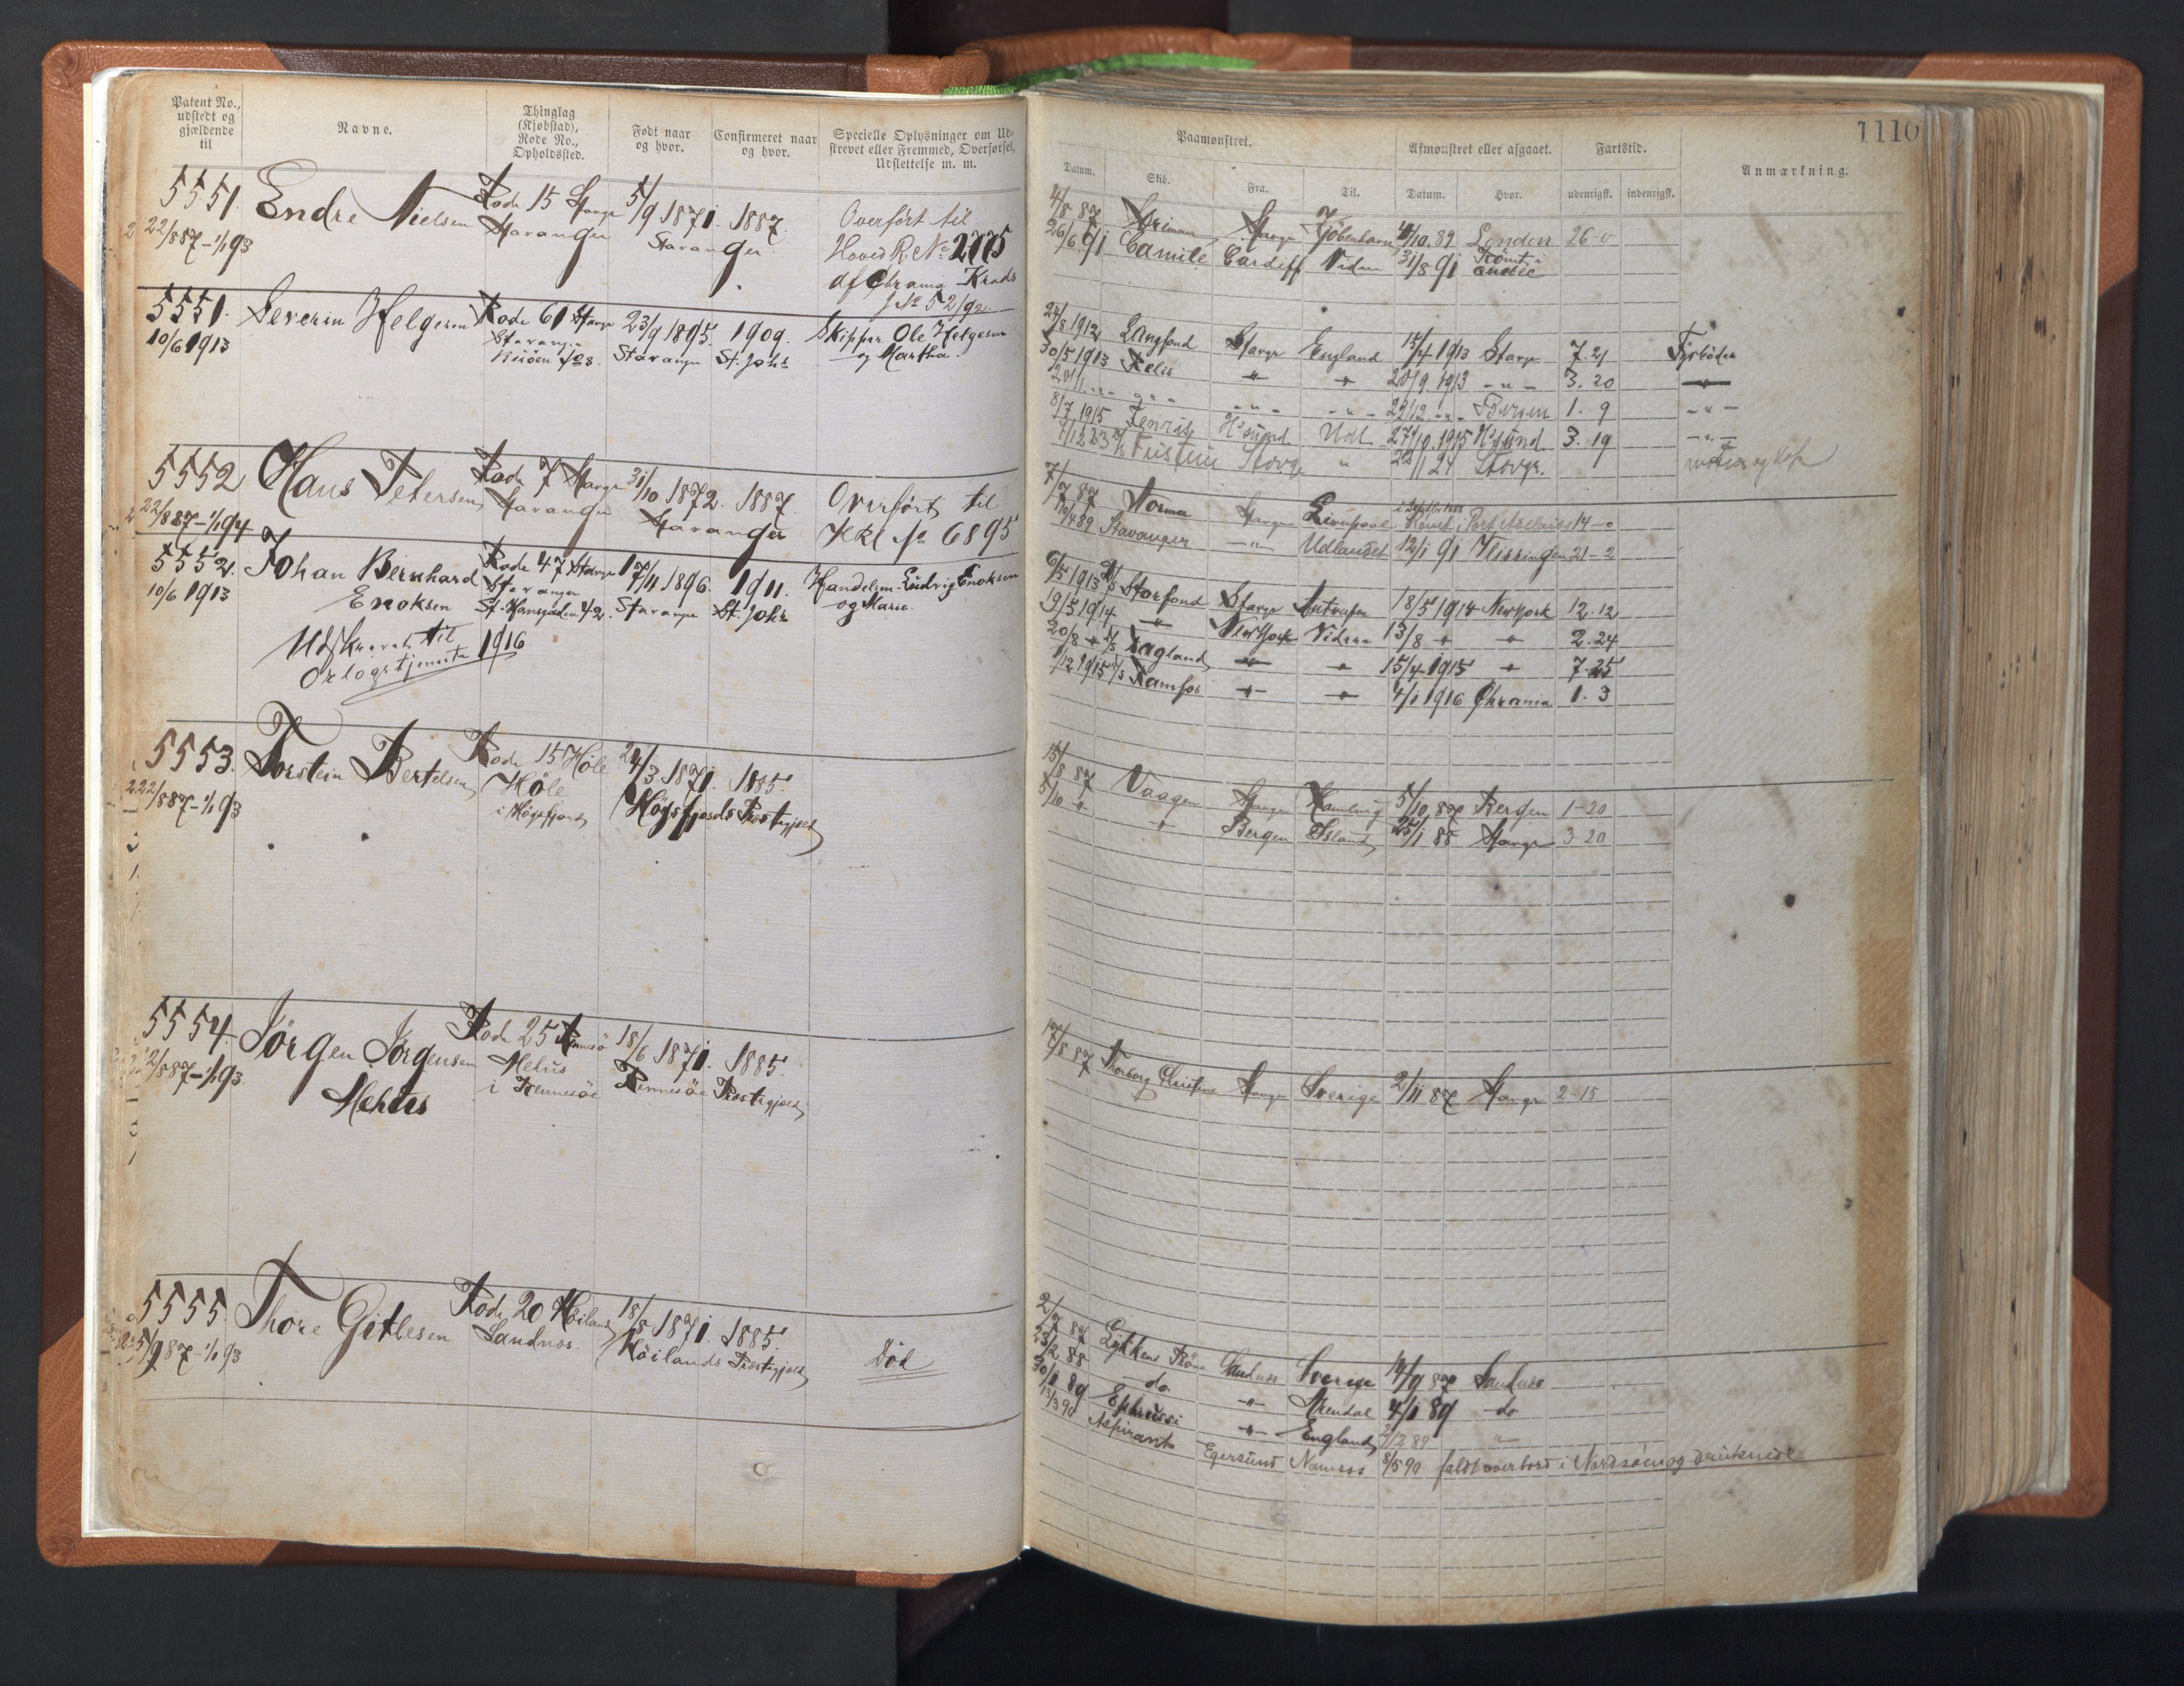 Patent No.,
udstedt og
gjældende
til
Navne.
Thinglag
(Kjøbstad),
Rode No.,
Opholdssted.
Født naar
og hvor.
Confirmeret naar
og hvor.
Specielle Oplysninger om Ud-
skrevet eller Fremmed, Overførsel,
Udslettelse m. m.
5551. Endre Nielsen Rode 15 Stavgr 5/9 1871. 1887.
22/8 87 - 1/1 93 Stavanger Stavanger
Overført til
Hoved R. No 2775
af Chrania Krads
J No 52/92
5551. Severin Helgesen Rode 61 Stavgr 23/9 1895. 1909. Skipper Ole Helgesen
10/6 1913 Stavanger Stavanger St. Johs og Martha.
5552 Hans Petersen Rode 7 Stavgr 31/10 1872. 1887. Overført til
22/8 87 - 1/1 94 Stavanger Stavanger HRl No 6895
5552. Johan Bernhard Rode 47 Stavgr 17/11 1896. 1911. Handelsm. Ludvig Enoksen
10/6 1913 Enoksen Stavanger St. Hansgaden 42. Stavanger St. Johs og Marie.
Udskrevet til 1916
Orlogstjeneste
5553. Torstein Bertelsen Rode 15 Høle 24/3 1871. 1885.
22/8 87 - 1/1 93 Høle
i Høgsfjord Høgsfjords Prestegjeld
5554 Jørgen Jørgensen Rode 25 Rennesø 18/6 1871. 1885.
22/8 87 - 1/1 93 Mehus Mehus
i Rennesøe Rennesøe Prestegjeld
5555 Thore Gitlesen Rode 20 Høiland 18/8 1871. 1885.
5/9 87 - 1/1 93 Sandnes Høilands Prestegjeld Død
1110
Paamønstret.
Afmønstret eller afgaaet.
Fartstid.
Anmærkning.
Datum.
Skib.
Fra.
Til.
Datum.
Hvor.
udenrigsk.
indenrigsk.
4/8 87 Stavgr Kjøbenhavn 4/10. 89 London 26-0
26/6 91 Camile Cardiff Viden 31/8 91 Rømt i
24/8 1912 Langfond Stavgr England 14/4 1913 Stavgr 7. 21 Fyrbøder
30/5 1913 Kelis " " 20/9 1913 - " - 3. 20 "
20/11 - " - - " - - " - - " - 22/12 - " - Bergen 1. 9 - " -
8/7 1915 Fenris H'sund Udl. 27/10. 1915 H'sund 3. 19 - " -
7/12 23 Stavgr " 22/1 24 Stavgr.
7/7 87 Norma Stavgr Liverpool Rømt i Port Adelaide 14-0
10/4 89 Stavanger - " - Udlandet 12/1 91 Vlissingen 21-2
6/5 1913 D/S Storfond Stavgr Antverpen 18/5 1914 NewYork 12. 12
19/5 1914 " NewYork Videre 13/8 " " 2. 24
20/8 " D/S Dagland " " 15/4 1915 " 7. 25
1/12 1915 D/S Ramfos " " 4/1 1916 Chrania 1. 3
15/8 87 Vaagen Stavgr Hamburg 5/10 87 Bergen 1-20
5/10 " " Bergen Island 25/1 88 Stavgr 3-20
17/8 87 Thorborg Christine Stavgr Sverige 2/11 87 Stavgr 2-15
2/7 87 Lykkens Prøve Sandnes Sverige 14/9 87 Sandnes
23/2 88 do - " - Arendal 4/1 89 do
30/1 89 Ephrussi - " - England 2/2 89 "
13/3 90 Aspirant Egersund Namsos 8/5 90 faldt overbord i Nordsøen og druknede